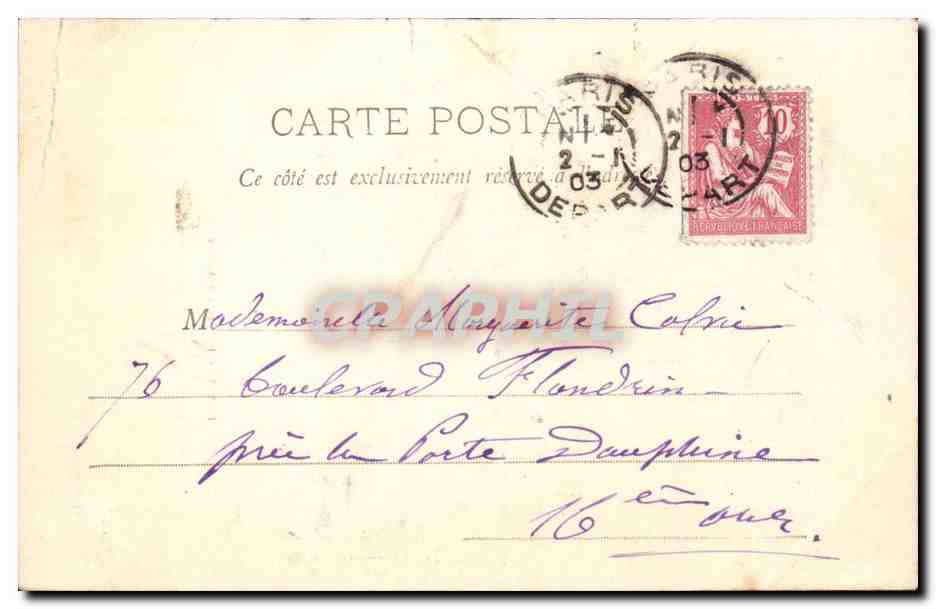 CARTE POSTALE
Ce côté est exclusivement réservé à
PARIS
N
2 - 1
03
DEPART
PARIS
N
2 - 1
03
DEPART
10
POSTES
REPVBLIQVE FRANÇAISE
CPAPHIL
Mademoiselle Marguerite
76 boulevard Flandrin
près la Porte Dauphine
16 ème